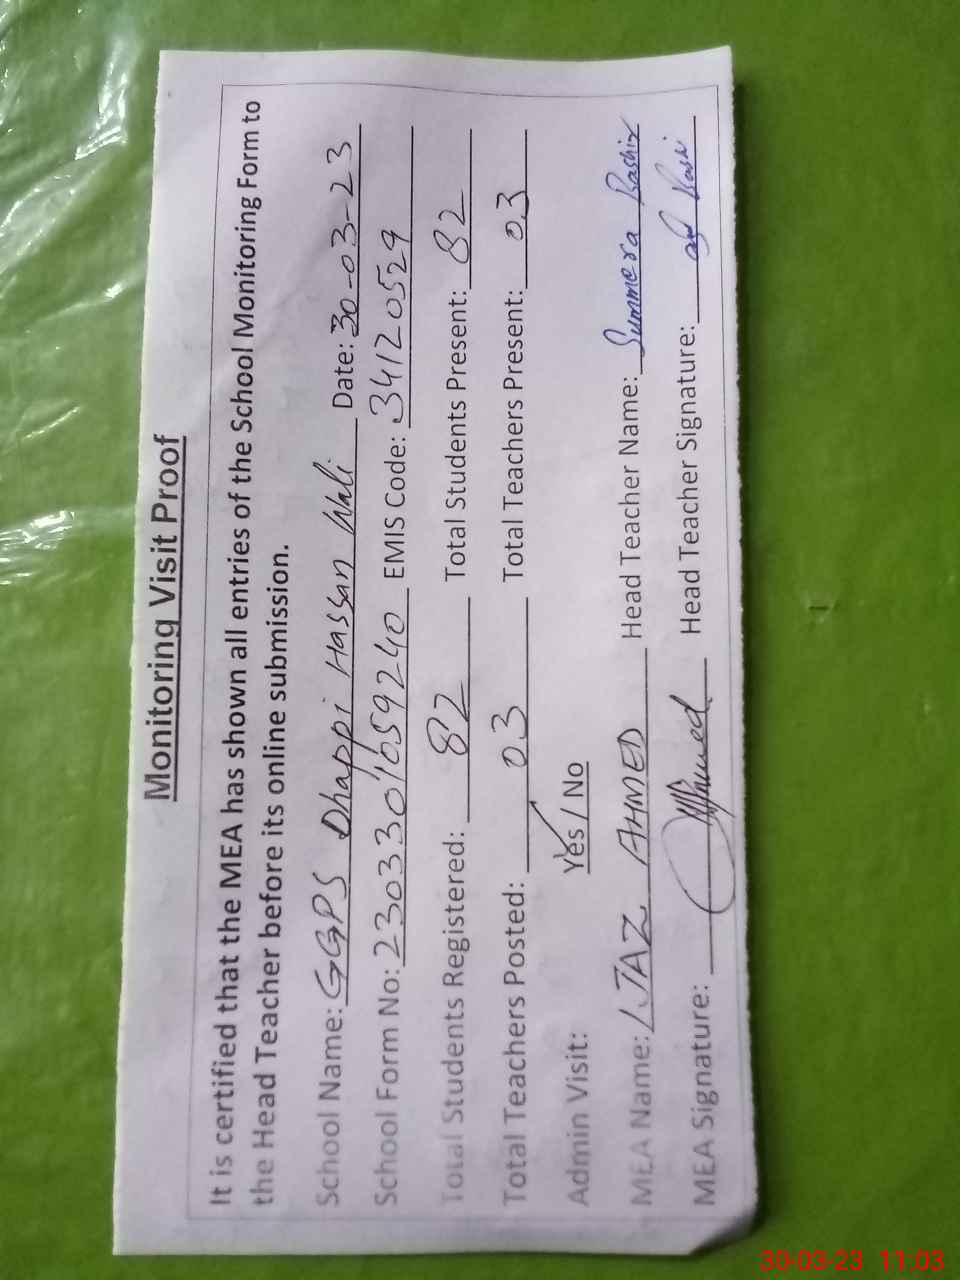 Monitoring Visit Proof
It is certified that the MEA has shown all entries of the School Monitoring Form to
the Head Teacher before its online submission.
School Name: GGPS Dhappi Hassan Wali Date: 30-03-23
School Form No: 23033010659240 EMIS Code: 34120529
Total Students Registered: 82 Total Students Present: 82
Total Teachers Posted: 03 Total Teachers Present: 03
Admin Visit: Yes / No
MEA Name: IJAZ AHMED Head Teacher Name: Summera Rashid
MEA Signature: Head Teacher Signature:
30-03-23 11:03